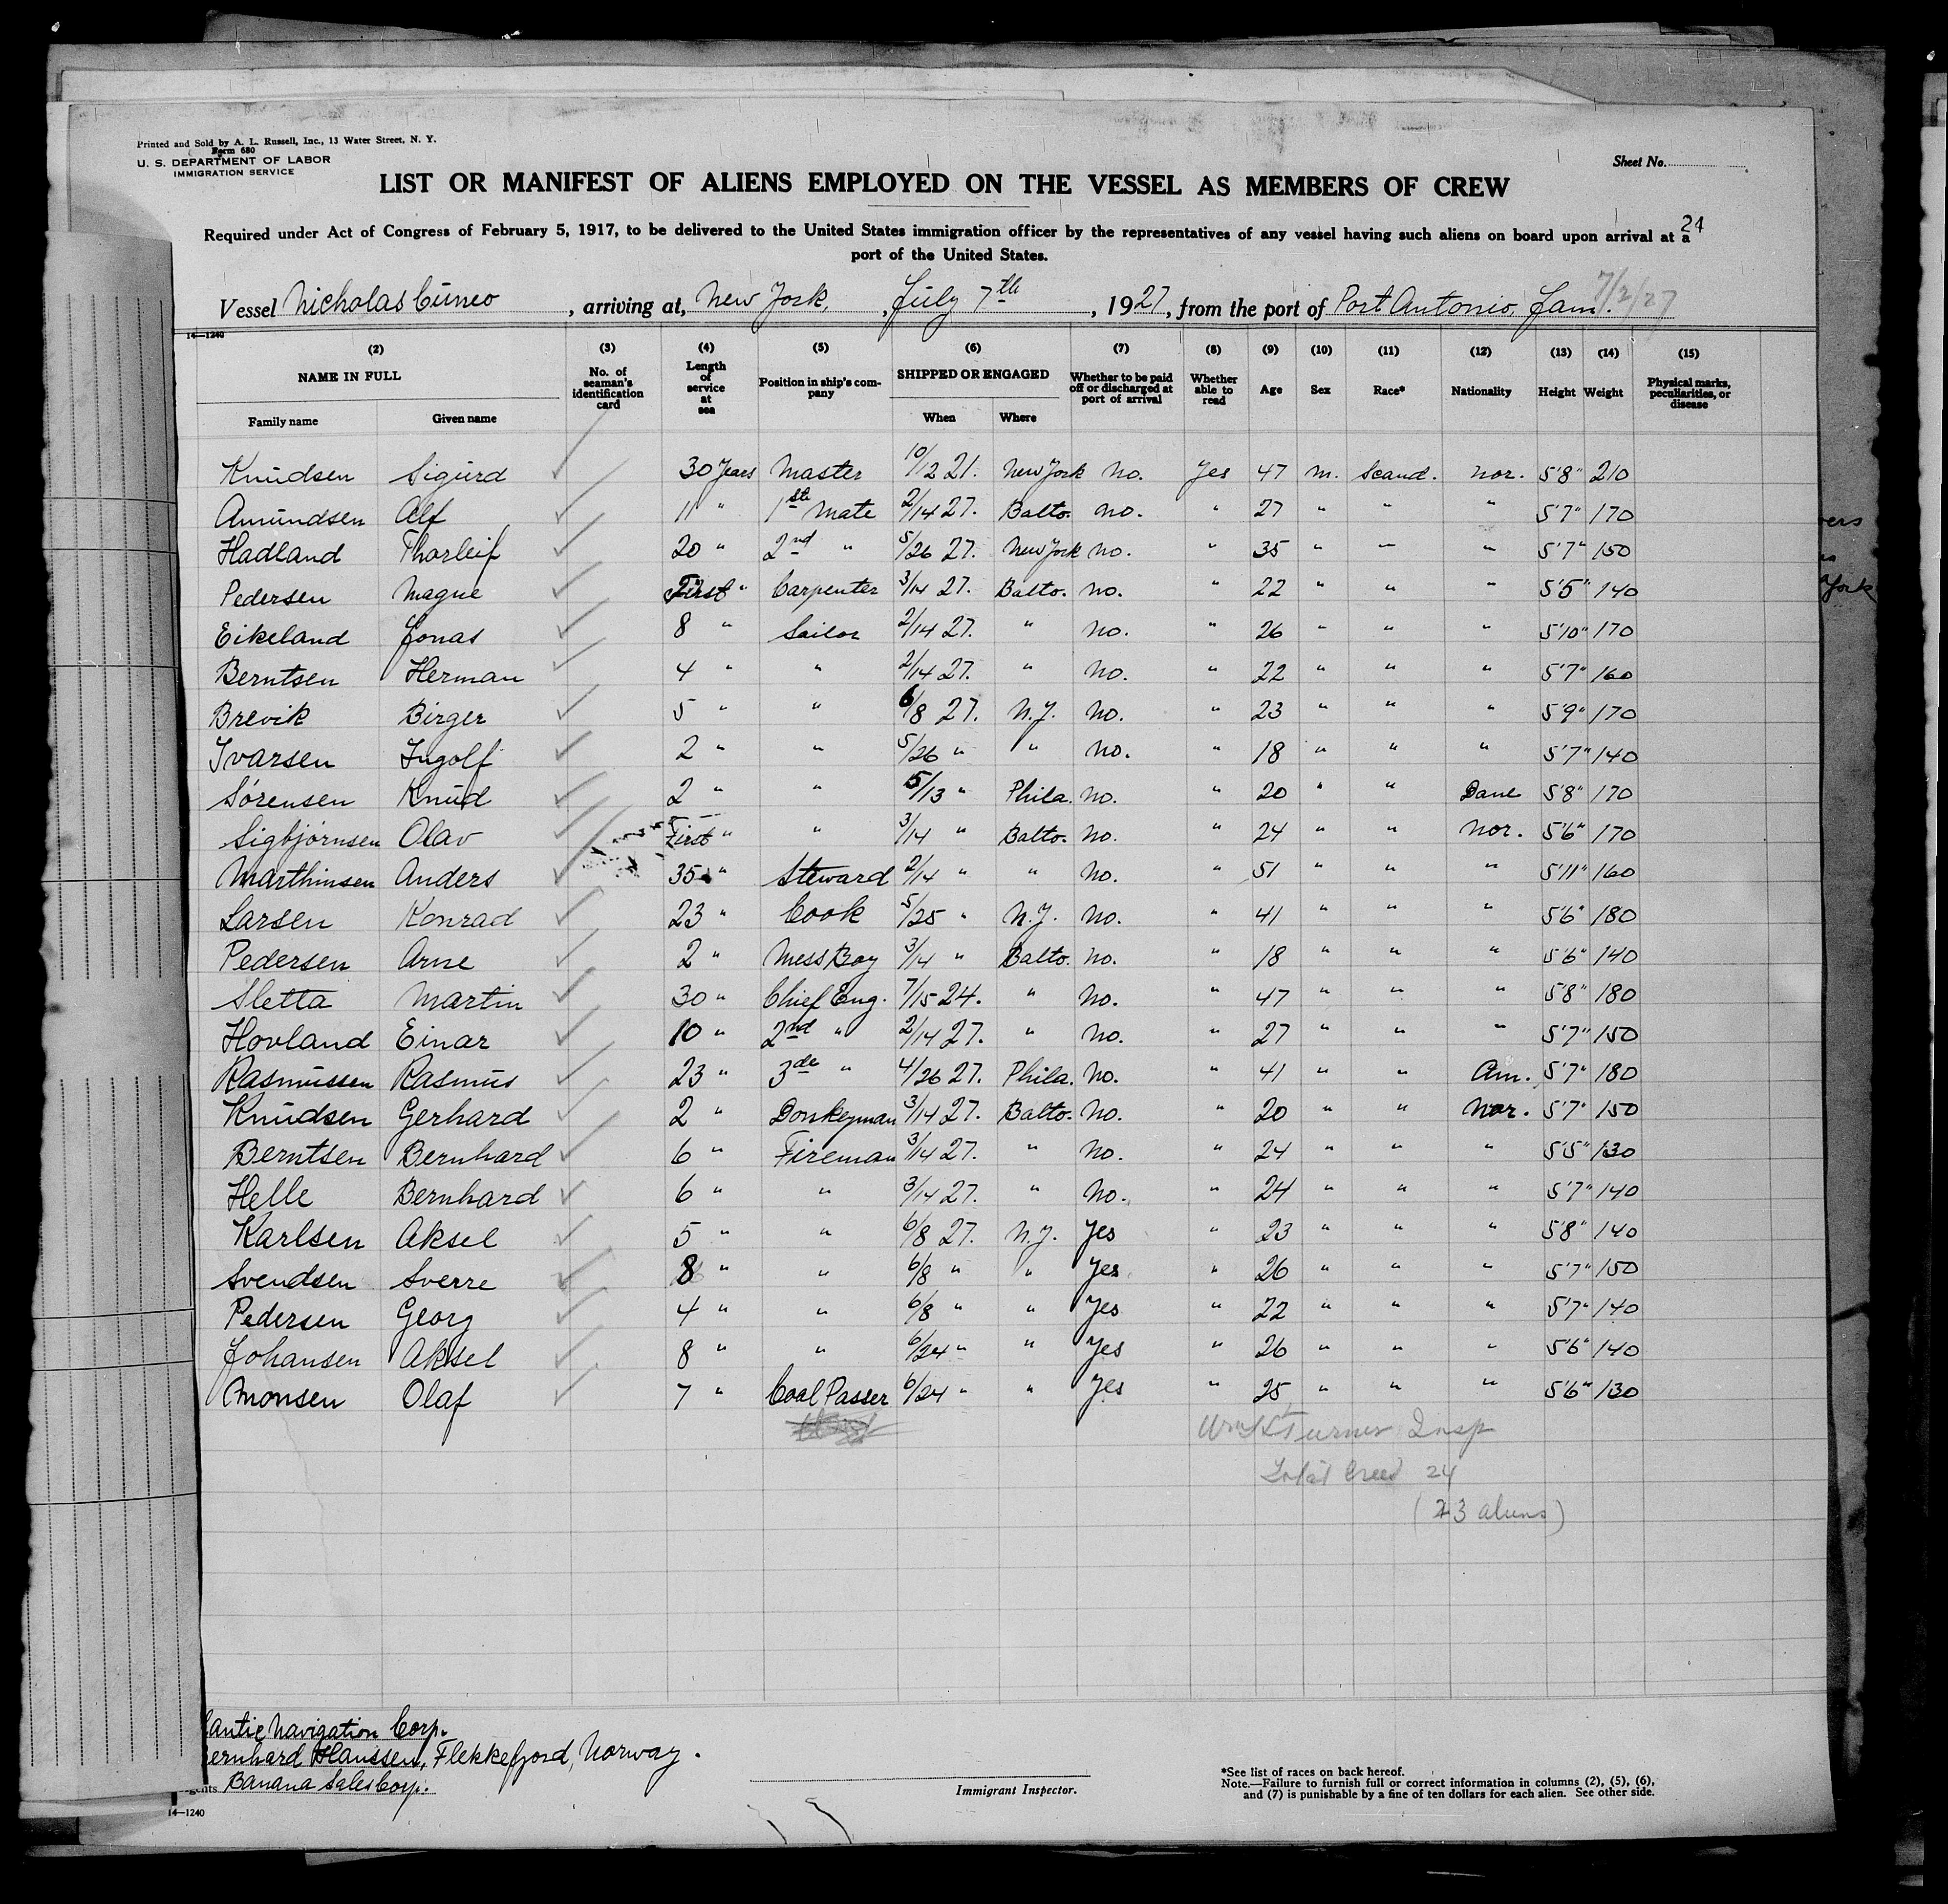 Printed and Sold by A. L. Russell, Inc., 13 Water Street, N. Y.
Form 680
U. S. DEPARTMENT OF LABOR
IMMIGRATION SERVICE
Sheet No.
LIST OR MANIFEST OF ALIENS EMPLOYED ON THE VESSEL AS MEMBERS OF CREW
24
Required under Act of Congress of February 5, 1917, to be delivered to the United States immigration officer by the representatives of any vessel having such aliens on board upon arrival at a
port of the United States.
7/2/27
Vessel Nicholas Cuneo, arriving at, New York, , July 7th, 1927, from the port of Port Antonio, Jam.
14—1240
(2) (3) (4) (5) (6) (7) (8) (9) (10) (11) (12) (13) (14) (15)
NAME IN FULL No. of seaman's identification card Length of service at sea Position in ship's company SHIPPED OR ENGAGED Whether to be paid off or discharged at port of arrival Whether able to read Age Sex Race* Nationality Height Weight Physical marks, peculiarities, or disease
Family name Given name When Where
Knudsen Sigurd 30 Years Master 10/12 21. New York no. Yes 47 m. Scand. nor. 5'8" 210
Amundsen Alf 11 " 1st Mate 2/14 27. Balto. no. " 27 " " " 5'7" 170
Hadland Thorleif 20 " 2nd " 5/26 27. New York no. " 35 " " " 5'7" 150
Pedersen Magne First " Carpenter 3/14 27. Balto. no. " 22 " " " 5'5" 140
Eikeland Jonas 8 " Sailor 2/14 27. " no. " 26 " " " 5'10" 170
Berntsen Herman 4 " " 2/14 27. " no. " 22 " " " 5'7" 160
Brevik Birger 5 " " 6/8 27. N.Y. no. " 23 " " " 5'9" 170
Ivarsen Ingolf 2 " " 5/26 " " no. " 18 " " " 5'7" 140
Sørensen Knud 2 " " 5/13 " Phila. no. " 20 " " Dane 5'8" 170
Sigbjørnsen Olav First " " 3/14 " Balto. no. " 24 " " nor. 5'6" 170
Marthinsen Anders 35 " Steward 2/14 " " no. " 51 " " " 5'11" 160
Larsen Konrad 23 " Cook 5/25 " N.Y. no. " 41 " " " 5'6" 180
Pedersen Arne 2 " Mess Boy 3/14 " Balto. no. " 18 " " " 5'6" 140
Sletta Martin 30 " Chief Eng. 7/15 24. " no. " 47 " " " 5'8" 180
Hovland Einar 10 " 2nd " 2/14 27. " no. " 27 " " " 5'7" 150
Rasmussen Rasmus 23 " 3de " 4/26 27. Phila. no. " 41 " " Am. 5'7" 180
Knudsen Gerhard 2 " Donkeyman 3/14 27. Balto. no. " 20 " " Nor. 5'7" 150
Berntsen Bernhard 6 " Fireman 3/14 27. " no. " 24 " " " 5'5" 130
Helle Bernhard 6 " " 3/14 27. " no. " 24 " " " 5'7" 140
Karlsen Aksel 5 " " 6/8 27. N.Y. Yes " 23 " " " 5'8" 140
Svendsen Sverre 8 " " 6/8 " " Yes " 26 " " " 5'7" 150
Pedersen Georg 4 " " 6/8 " " Yes " 22 " " " 5'7" 140
Johansen Aksel 8 " " 6/24 " " Yes " 26 " " " 5'6" 140
Monsen Olaf 7 " Coal Passer 6/24 " " Yes " 25 " " " 5'6" 130
Turner Insp
Total Crew 24
(23 aliens)
lantic Navigation Corp.
ernhard Hanssen, Flekkefjord, Norway.
gents Banana Sales Corp.
14—1240
Immigrant Inspector.
*See list of races on back hereof.
Note.—Failure to furnish full or correct information in columns (2), (5), (6),
and (7) is punishable by a fine of ten dollars for each alien. See other side.
vers
York